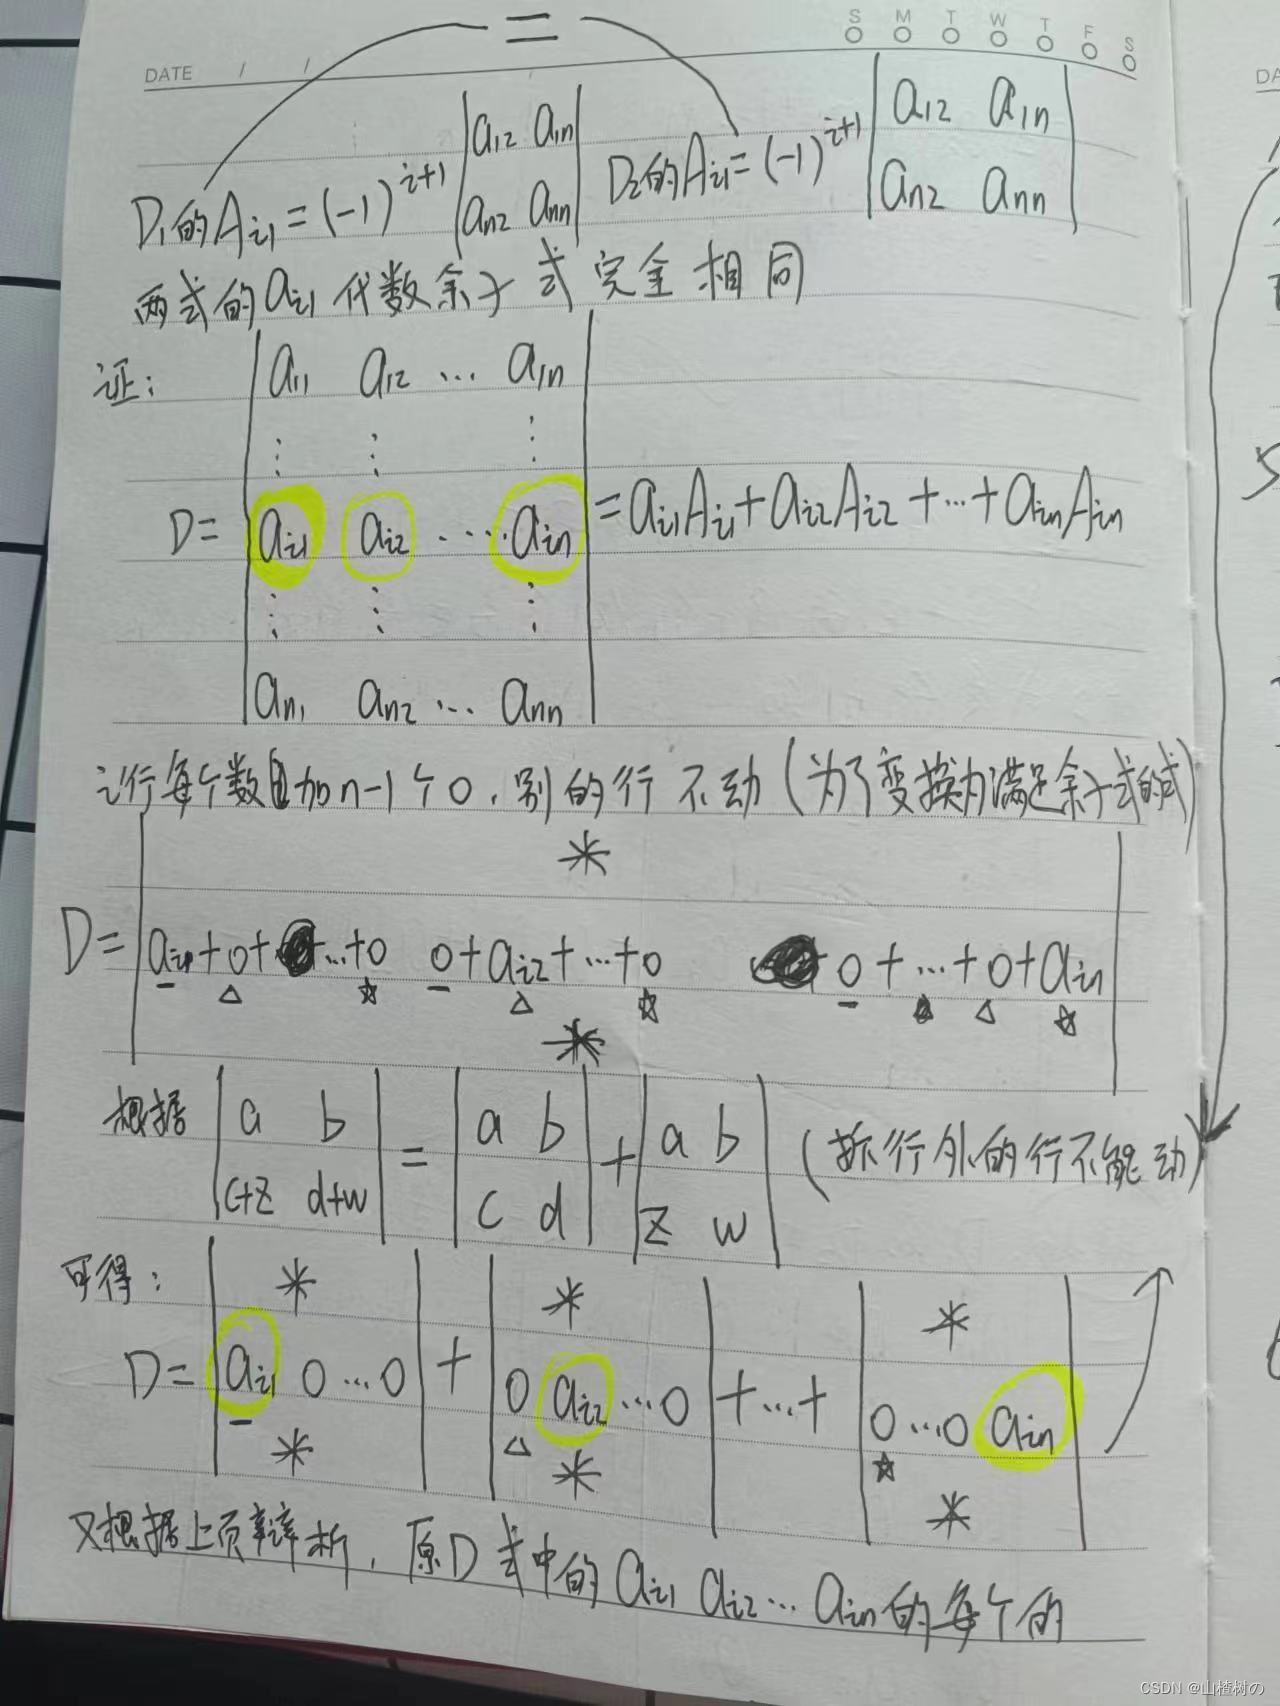 S M T W T F S
DATE / /
=
D₁的Aᵢ₁=(-1)ⁱ⁺¹ |a₁₂ a₁ₙ| D₂的Aᵢ₁=(-1)ⁱ⁺¹ |a₁₂ a₁ₙ|
|aₙ₂ aₙₙ| |aₙ₂ aₙₙ|
两式的aᵢ₁代数余子式完全相同
证: |a₁₁ a₁₂ … a₁ₙ|
⋮ ⋮ ⋮
D= |aᵢ₁ aᵢ₂ … aᵢₙ| =aᵢ₁Aᵢ₁+aᵢ₂Aᵢ₂+…+aᵢₙAᵢₙ
⋮ ⋮ ⋮
|aₙ₁ aₙ₂ … aₙₙ|
i行每个数加n-1个0,别的行不动(为了变换为满足余子式的式)
*
D= |aᵢ₁+0+…+0 0+aᵢ₂+…+0 0+…+0+aᵢₙ|
*
根据 |a b| = |a b| + |a b| (拆行外的行不能动)
|c+z d+w| |c d| |z w|
可得: * * *
D= |aᵢ₁ 0…0| + |0 aᵢ₂ …0| +…+ |0…0 aᵢₙ|
* * *
又根据上页辩析,原D式中的aᵢ₁ aᵢ₂… aᵢₙ的每个的
CSDN @山楂树の